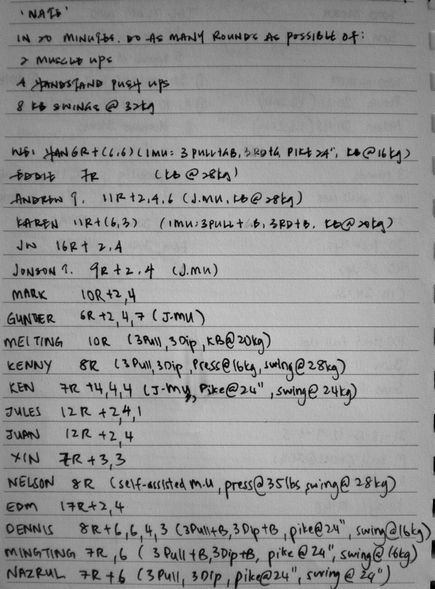 'NATE'
IN 20 MINUTES. DO AS MANY ROUNDS AS POSSIBLE OF:
2 MUSCLE UPS
4 HANDSTAND PUSH UPS
8 KB SWINGS @ 32kg
6R+(6,6) (1MU: 3PULL+B, 3RD+B, PIKE 24", KB@16kg)
EDDIE 7R (KB@28kg)
ANDREW Y. 11R+2,4,6 (J.MU, KB@28kg)
KAREN 11R+(6,3) (1MU:3PULL+B, 3RD+B. KB@20kg)
JW 16R+2,4
JONSON T. 9R+2.4 (J.MU)
MARK 10R+2,4
GUNDER 6R+2,4,7 (J.MU)
MEITING 10R (3Pull, 3Dip, KB@20kg)
KENNY 8R (3Pull, 3Dip, Press@16kg, swing@28kg)
KEN 7R+4,4,4 (J-MU, Pike@24", swing@24kg)
JULES 12R+2,4,1
JUAN 12R+2,4
XIN 7R+3,3
NELSON 8R (self-assisted m.u, press@35lbs, swing@28kg)
EDM 17R+2,4
DENNIS 8R+6,6,4,3 (3Pull+B, 3Dip+B, pike@24", swing@16kg)
MINGTING 7R,6 (3Pull+B, 3Dip+B, pike@24", swing@16kg)
NAZRUL 7R+6 (3Pull, 3Dip, pike@24", swing@24")